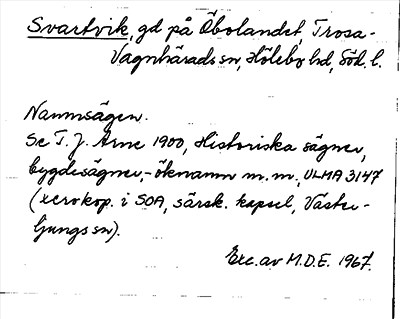 Svartvik, gd på Öbolandet, Trosa-
Vagnhärads sn, Hölebo hd, Söd. l.
Namnsägen.
Se T. J. Arne 1900, Historiska sägner,
bygdesägner,- öknamn m. m., ULMA 3147
(xerokop. i SOA, särsk. kapsel, Väster-
ljungs sn).
Exc. av M.D.E. 1967.